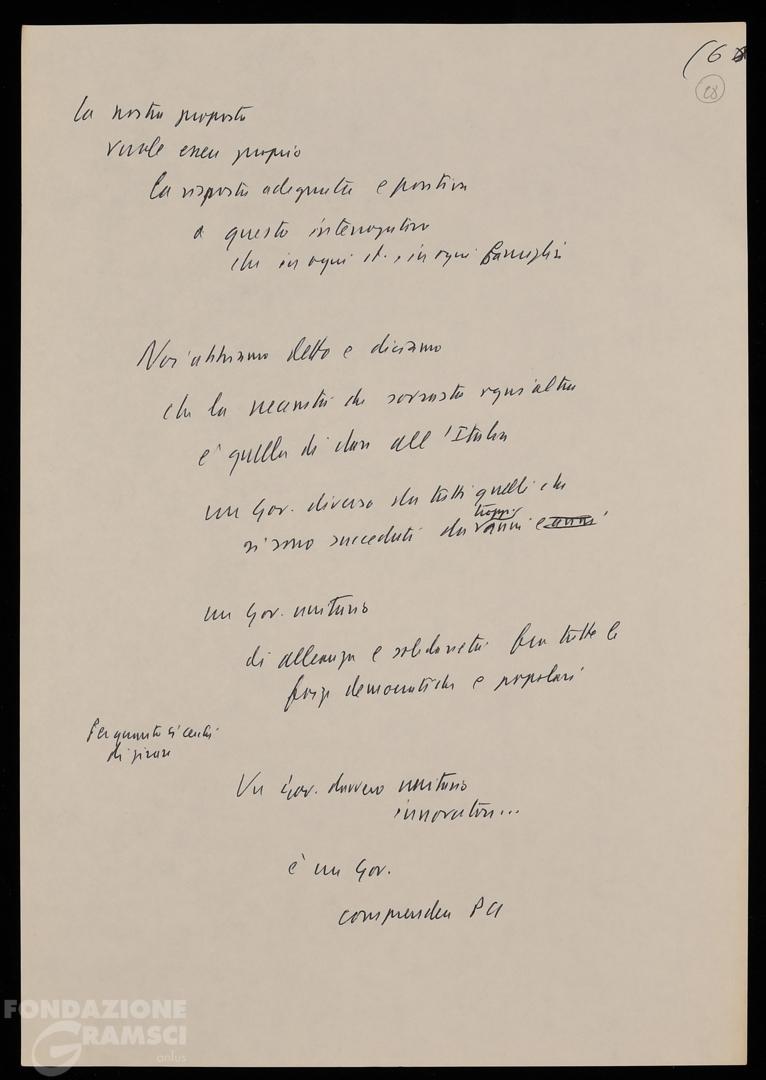 (6
28
La nostra proposta
vuole essere proprio
la risposta adeguata e positiva
a questo interrogativo
che in ogni , in ogni famiglia
Noi abbiamo detto e diciamo
che la necessità che sovrasta ogni altra
è quella di dare all'Italia
un Gov. diverso da tutti quelli che
si sono succeduti da troppi anni e anni
un Gov. unitario
di alleanza e solidarietà fra tutte le
forze democratiche e popolari
Per quanto si cerchi
di girare
Un Gov. davvero unitario
innovatore...
è un Gov.
comprenda PCI
FONDAZIONE
GRAMSCI
onlus